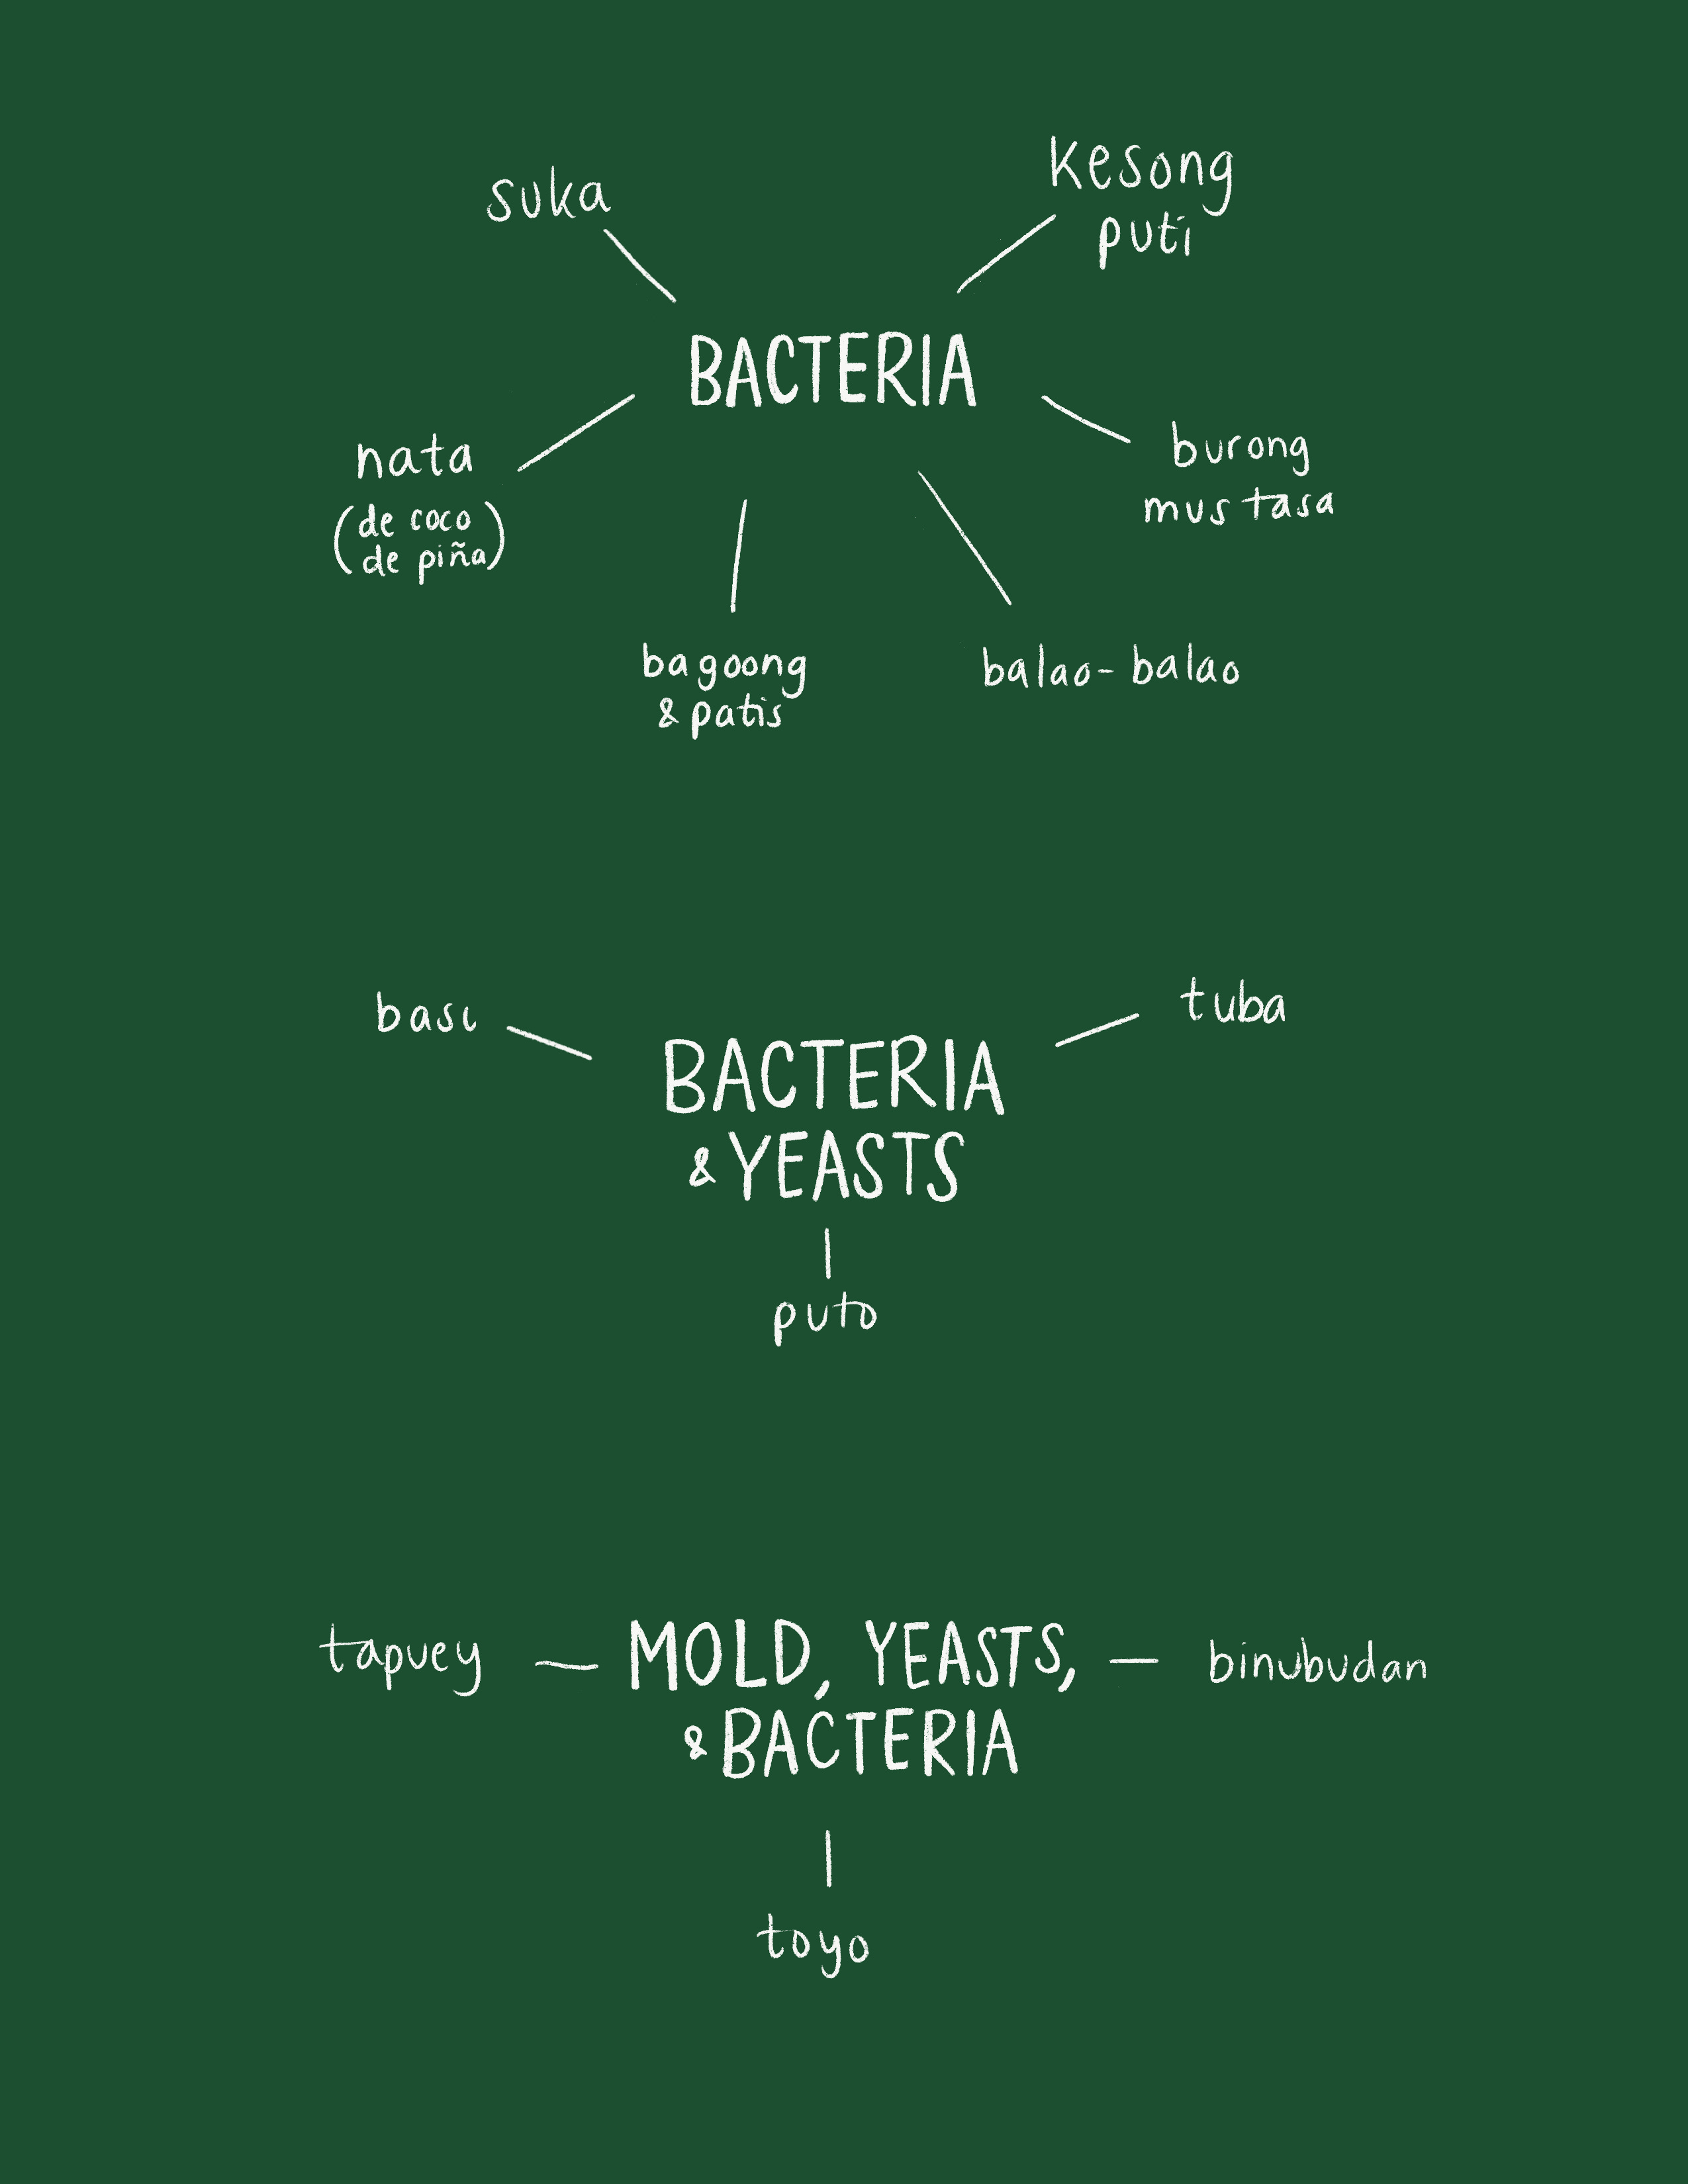 suka
kesong
puti
BACTERIA
nata
(de coco
de piña)
burong
mustasa
bagoong
& patis
balao-balao
basi
tuba
BACTERIA
& YEASTS
puto
tapuey
MOLD, YEASTS,
& BACTERIA
binubudan
toyo